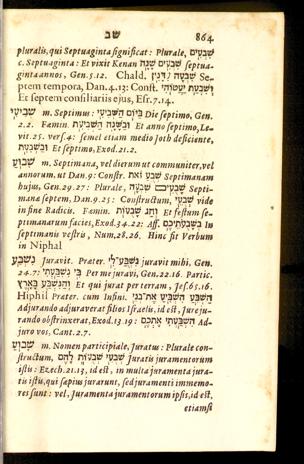 שב 864
pluralis, qui Septuaginta significat: Plurale, שִׁבְעִים
c. Septuaginta: Et vixit Kenan שִׁבְעִים שָׁנָה septua-
ginta annos, Gen. 5.12. Chald. שִׁבְעָה Se-
ptem tempora, Dan. 4.13: Const.
Et septem consiliarii ejus, Esr. 7.14.
שְׁבִיעִי m. Septimus: בַּיּוֹם הַשְּׁבִיעִי Die septimo, Gen.
2.2. Fæmin. וּבַשָּׁנָה הַשְּׁבִיעִת Et anno septimo, Le-
vit. 25. vers. 4: semel etiam medio Jod deficiente,
וּבַשְּׁבִעִת Et septimo, Exod. 21.2.
שָׁבוּעַ m. Septimana, vel dierum ut communiter, vel
annorum. ut Dan. 9: Constr. שְׁבֻעַ זֹאת Septimanam
hujus, Gen. 29.27: Plurale, Septi-
manæ septem, Dan. 9.25: Constructum, vide
in fine Radicis. Fæmin. וְחַג שָׁבֻעֹת Et festum se-
ptimanarum facies, Exod. 34.22: Aff. בְּשָׁבֻעֹתֵיכֶם In
septimanis vestris, Num. 28.26. Hinc sit Verbum
in Niphal
נִשְׁבַּע Juravit. Præter. הִשָּׁבְעָה לִּי juravit mihi, Gen.
24.7: בִּי נִשְׁבַּעְתִּי Per me juravi, Gen. 22.16. Partic.
וְהַנִּשְׁבָּע בָּאָרֶץ Et qui jurat per terram, Jes. 65.16.
Hiphil Præter. cum Infini. הַשְׁבֵּעַ הִשְׁבִּיעַ אֶת־בְּנֵי
Adjurando adjuraverat filios Israelis, id est, Jureju-
rando obstrinxerat, Exod. 13.19: הִשְׁבַּעְתִּי אֶתְכֶם Ad-
juro vos, Cant. 2.7.
שָׁבוּעַ m. Nomen participiale, Juratus: Plurale con-
structum, שְׁבֻעֵי שְׁבֻעוֹת לָהֶם Juratis juramentorum
istis: Ezech. 21.13, id est, in multa juramenta jura-
tis istis, qui sæpius jurarunt, sed juramenti immemo-
res sunt: vel, Juramenta juramentorum ipsis, id est,
etiamsi